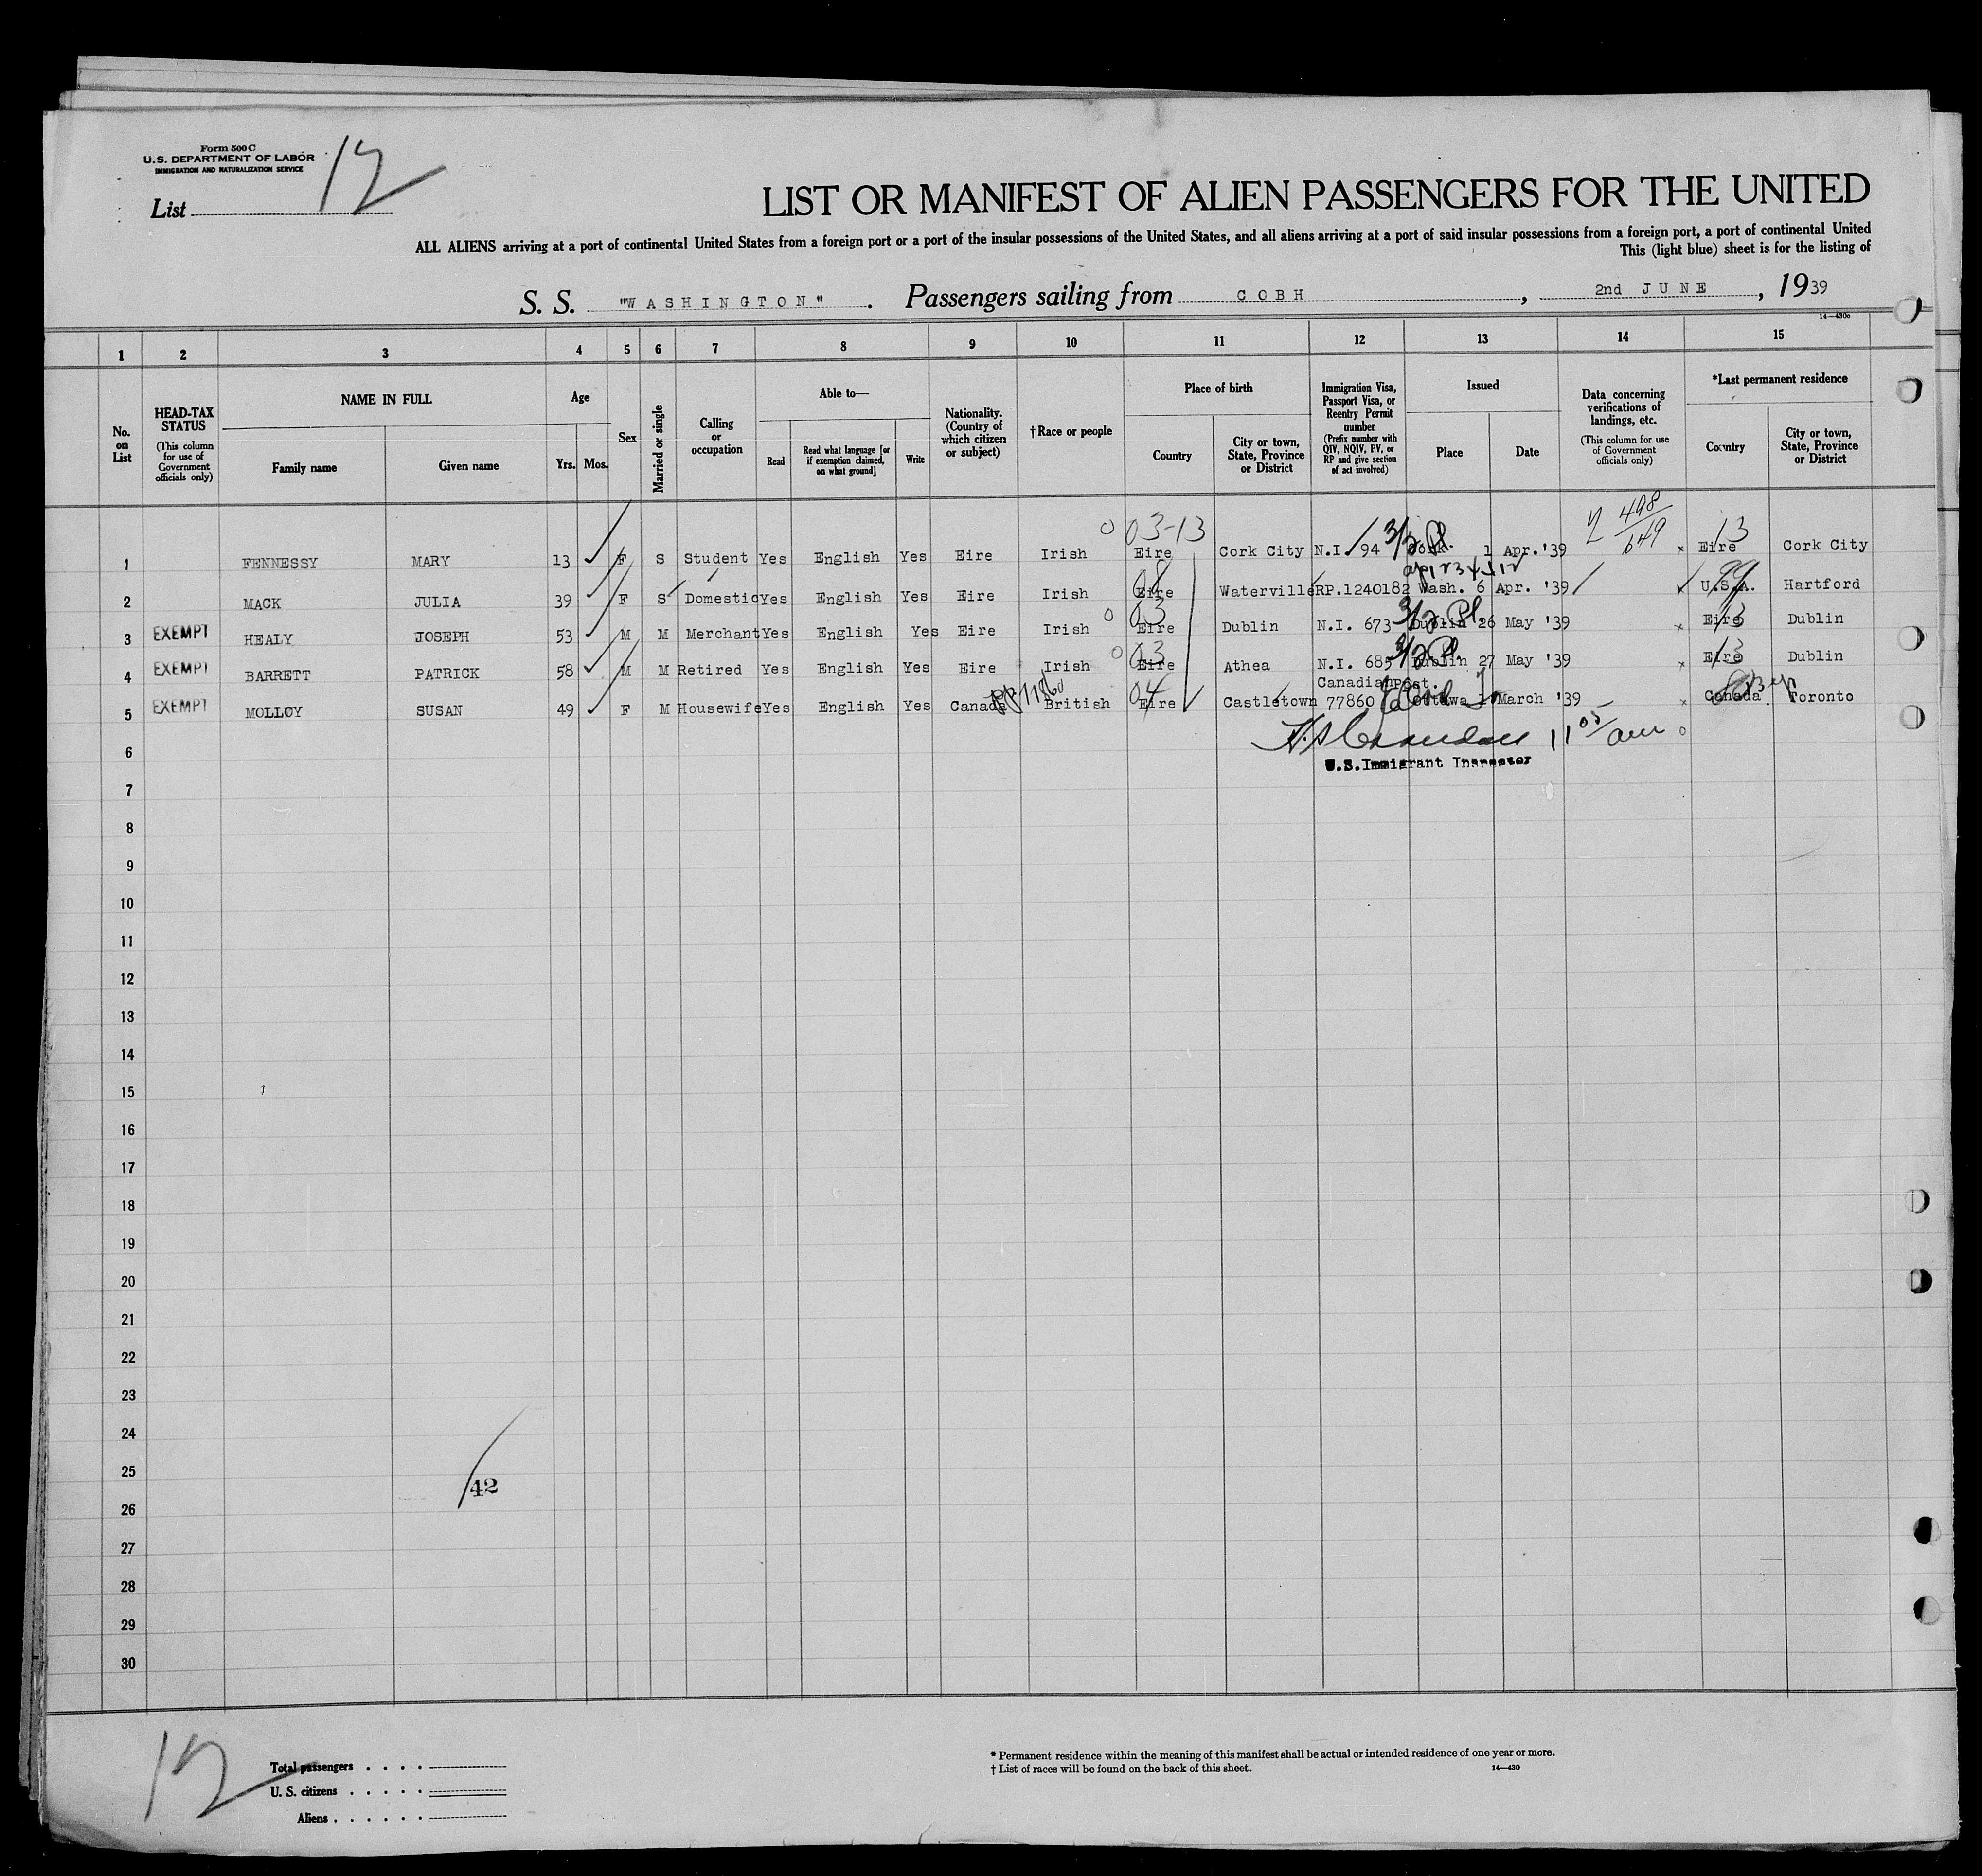 Form 500 C
U.S. DEPARTMENT OF LABOR
IMMIGRATION AND NATURALIZATION SERVICE
List 12
LIST OR MANIFEST OF ALIEN PASSENGERS FOR THE UNITED
ALL ALIENS arriving at a port of continental United States from a foreign port or a port of the insular possessions of the United States, and all aliens arriving at a port of said insular possessions from a foreign port, a port of continental United
This (light blue) sheet is for the listing of
S. S. "WASHINGTON". Passengers sailing from COBH, 2nd JUNE, 1939
14—430c
1 2 3 4 5 6 7 8 9 10 11 12 13 14 15
No. on List
HEAD-TAX STATUS (This column for use of Government officials only)
NAME IN FULL
Family name
Given name
Age
Yrs. Mos.
Sex
Married or single
Calling or occupation
Able to—
Read
Read what language [or if exemption claimed, on what ground]
Write
Nationality. (Country of which citizen or subject)
†Race or people
Place of birth
Country
City or town, State, Province or District
Immigration Visa, Passport Visa, or Reentry Permit number (Prefix number with QIV, NQIV, PV, or RP and give section of act involved)
Issued
Place
Date
Data concerning verifications of landings, etc. (This column for use of Government officials only)
*Last permanent residence
Country
City or town, State, Province or District
03-13 498 649 13
1 FENNESSY MARY 13 F S Student Yes English Yes Eire Irish Eire Cork City N.I. 94 Cork 1 Apr. '39 x Eire Cork City
2 MACK JULIA 39 F S Domestic Yes English Yes Eire Irish Eire Waterville RP.1240182 Wash. 6 Apr. '39 U.S.A. Hartford
3 EXEMPT HEALY JOSEPH 53 M M Merchant Yes English Yes Eire Irish 03 Eire Dublin N.I. 673 3/2 Dublin 26 May '39 x Eire 13 Dublin
4 EXEMPT BARRETT PATRICK 58 M M Retired Yes English Yes Eire Irish 03 Eire Athea N.I. 685 3/2 Dublin 27 May '39 x Eire 13 Dublin
Canadian pst.
5 EXEMPT MOLLOY SUSAN 49 F M Housewife Yes English Yes Canada British 04 Eire Castletown 77860 Ottawa March '39 x Canada Toronto
11 05 am
U.S. Immigrant Inspector
6
7
8
9
10
11
12
13
14
15
16
17
18
19
20
21
22
23
24
25
42
26
27
28
29
30
12
Total passengers
U. S. citizens
Aliens
* Permanent residence within the meaning of this manifest shall be actual or intended residence of one year or more.
† List of races will be found on the back of this sheet.
14—430